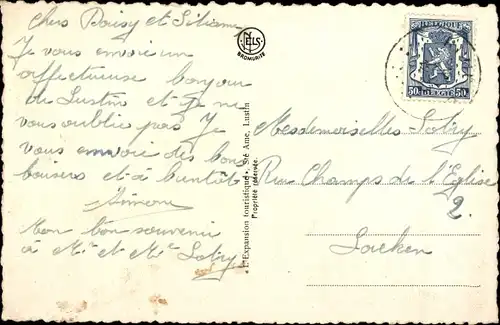 Chers Daisy et Liliane
Je vous envoie un
affectueuse bonjour
de Lustin et je ne
vous oublie pas Je
vous envoie des bons
baisers et à bientôt
Simone
Mon bon souvenir
à Mr et Me
NELS
BROMURITE
« L'Expansion touristique », Sté Ame, Lustin
Propriété réservée.
BELGIQUE
50c 50c
BELGIE
Mesdemoiselles
Rue Champs de l'Eglise
2.
Laeken